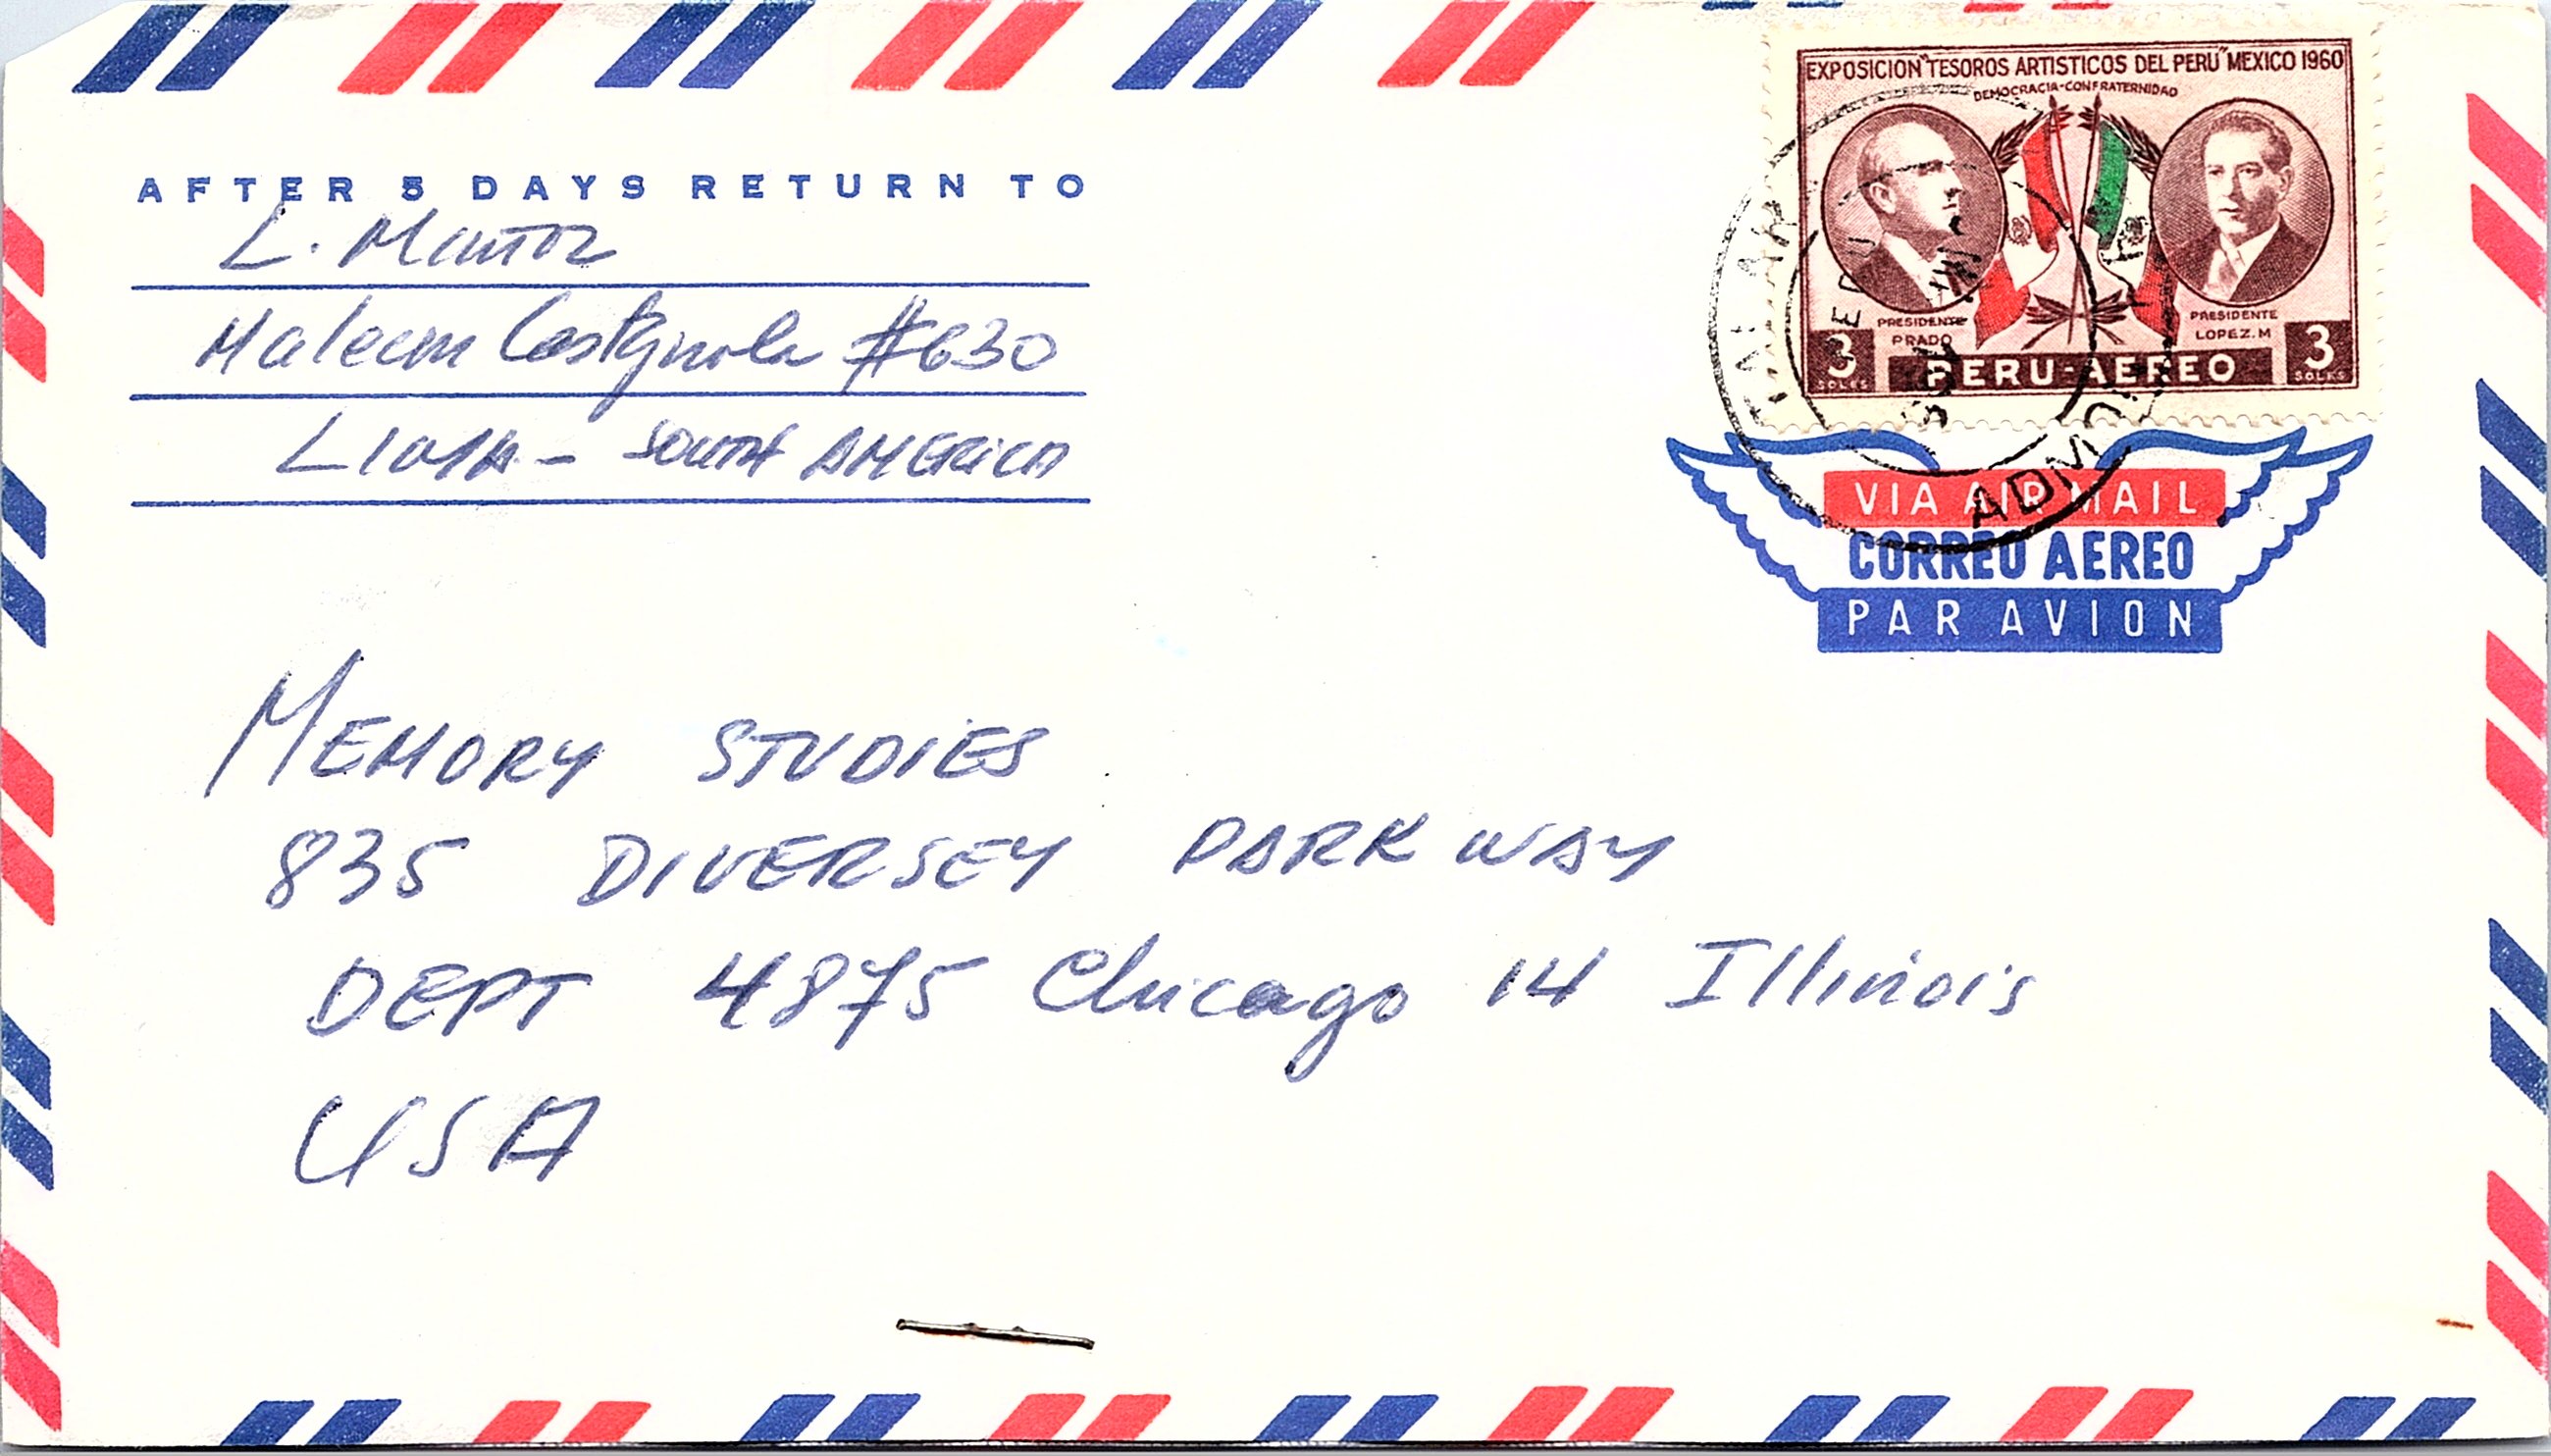 AFTER 5 DAYS RETURN TO
L.
Malecon Castagnola #630
LIMA - SOUTH AMERICA
EXPOSICION "TESOROS ARTISTICOS DEL PERU" MEXICO 1960
DEMOCRACIA-CONFRATERNIDAD
PRESIDENTE
PRADO
PRESIDENTE
LOPEZ.M
3
SOLES
PERU-AEREO
3
SOLES
PERU
ADM
VIA AIR MAIL
CORREO AEREO
PAR AVION
MEMORY STUDIES
835 DIVERSEY PARKWAY
DEPT 4875 Chicago 14 Illinois
USA